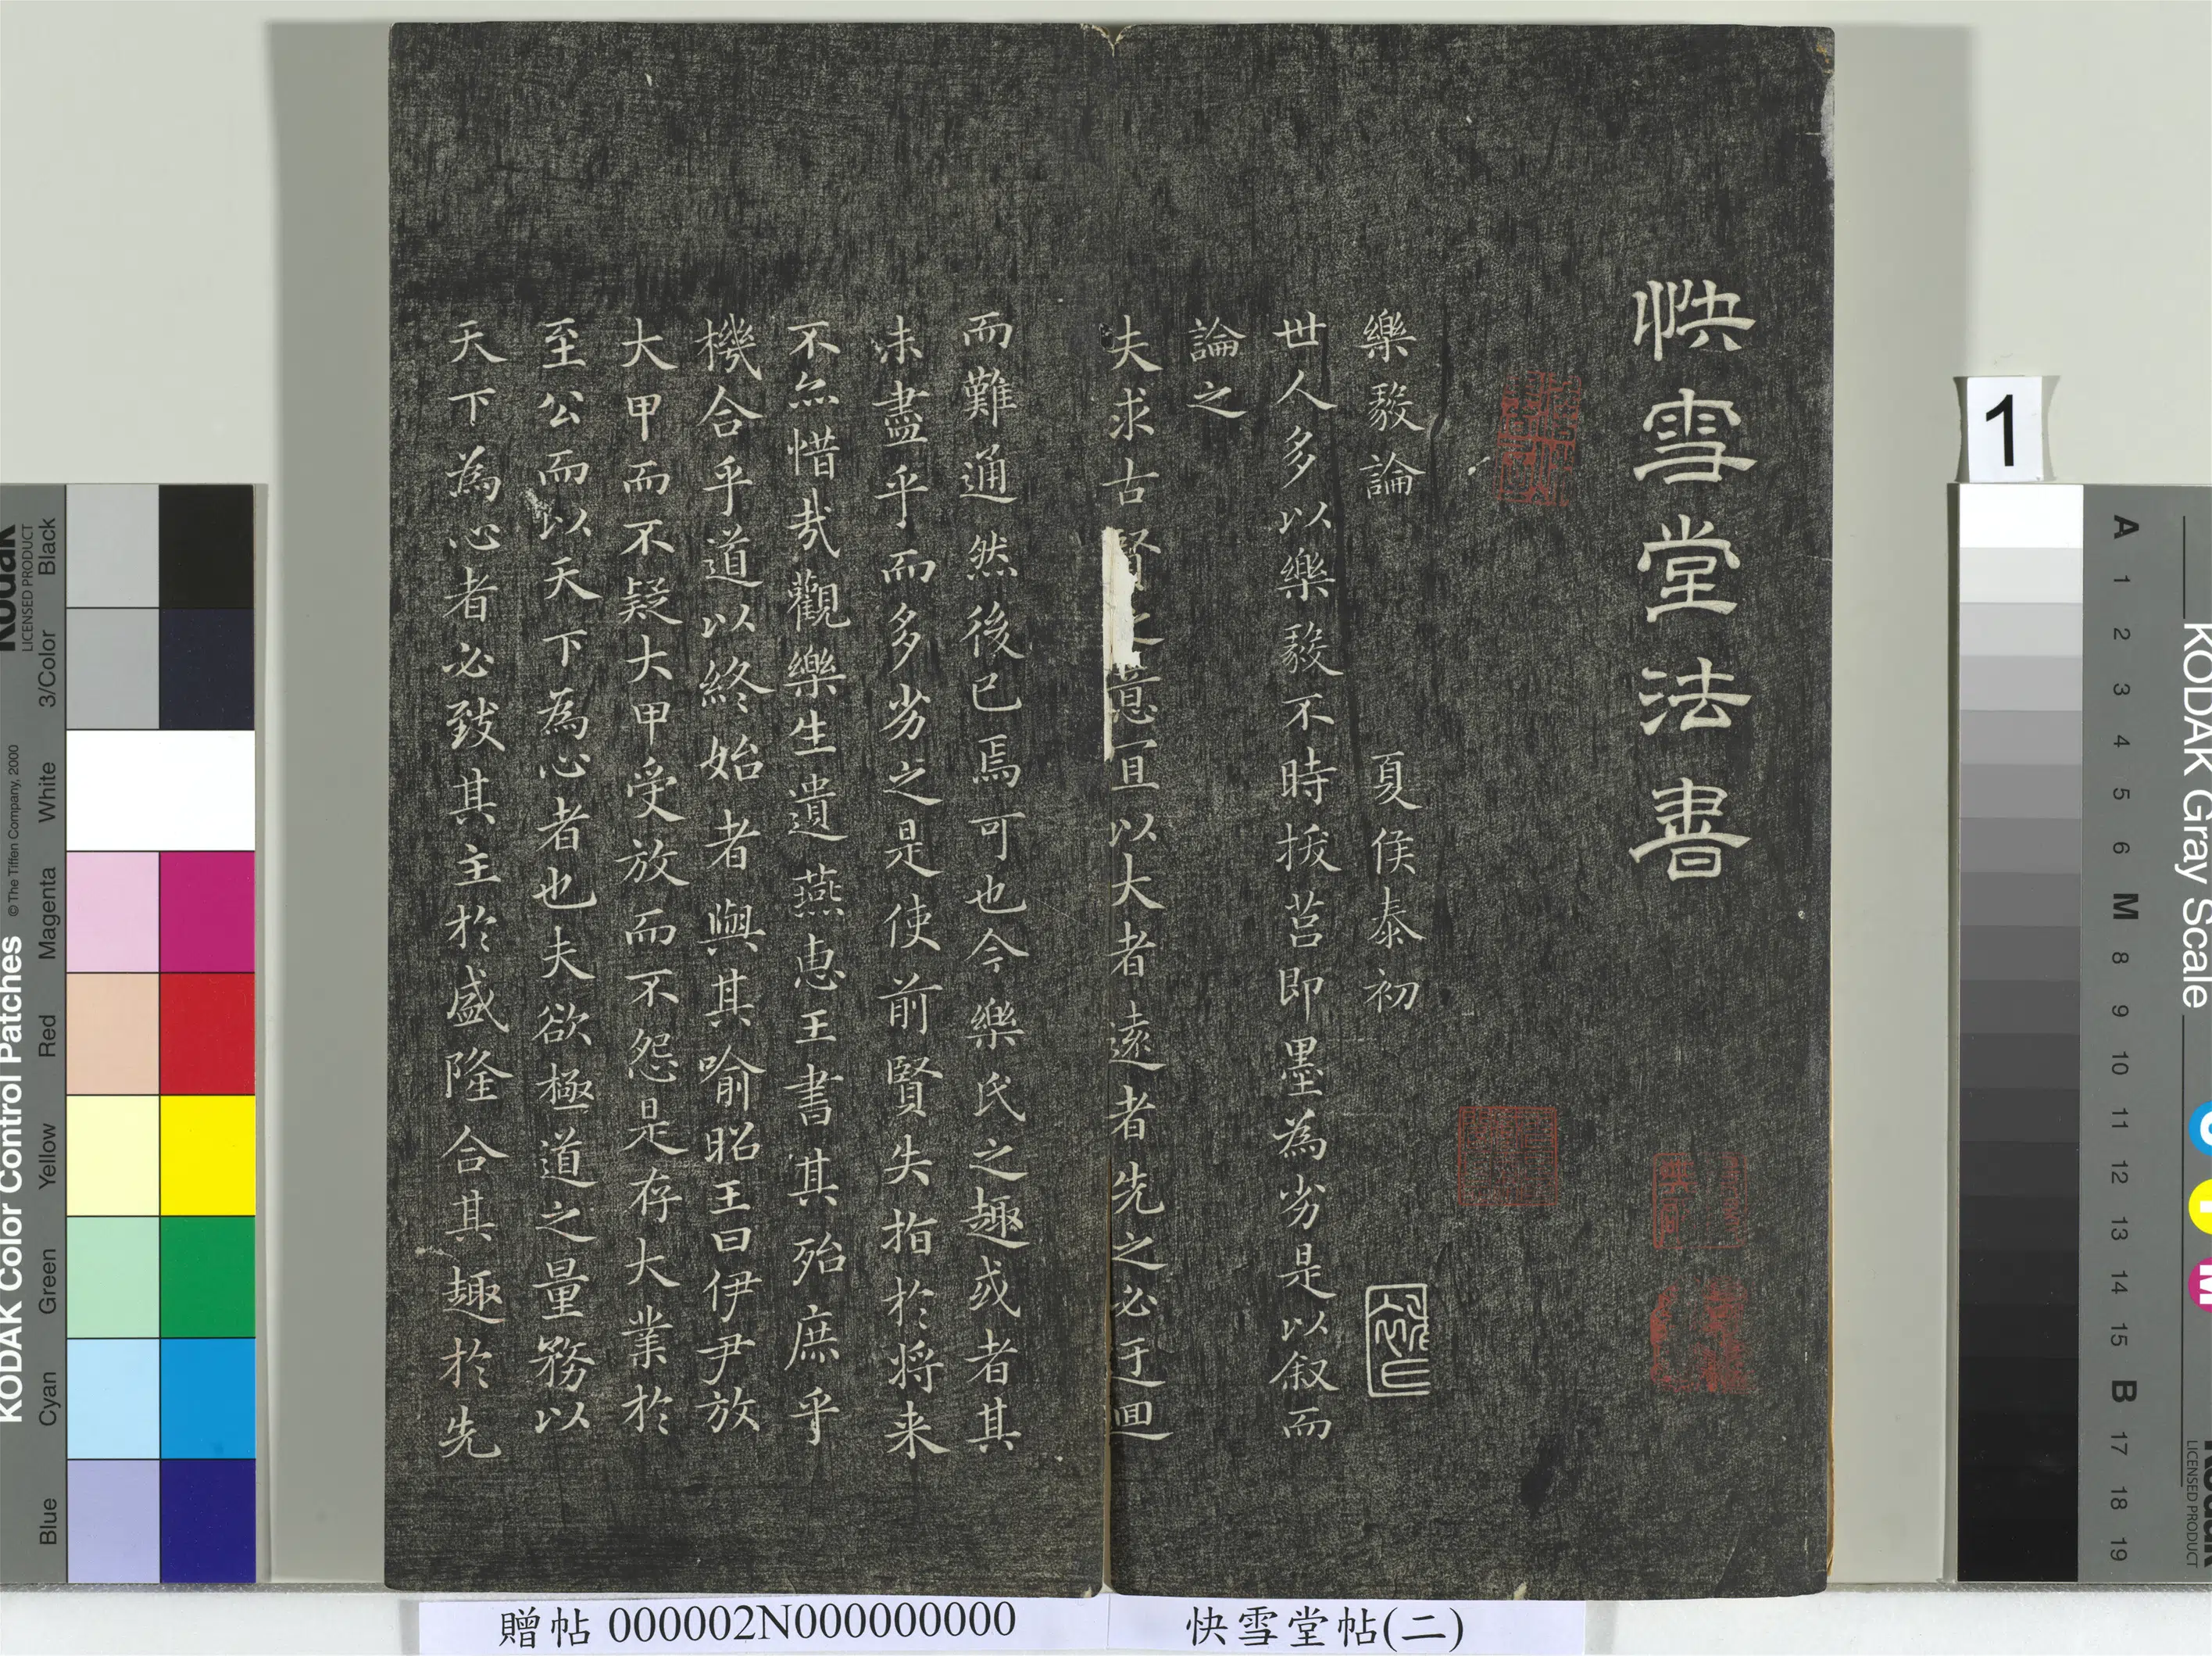 快雪堂法書
樂毅論 夏侯泰初
世人多以樂毅不時拔莒即墨為劣是以叙而
論之
夫求古賢之意宜以大者遠者先之必迂迴
而難通然後已焉可也今樂氏之趣或者其
未盡乎而多劣之是使前賢失指於将来
不亦惜哉觀樂生遺燕惠王書其殆庶乎
機合乎道以終始者與其喻昭王曰伊尹放
大甲而不疑大甲受放而不怨是存大業於
至公而以天下為心者也夫欲極道之量務以
天下為心者必致其主於盛隆合其趣於先
贈帖 000002N000000000
快雪堂帖(二)
1
KODAK Color Control Patches
© The Tiffen Company, 2000
Kodak
LICENSED PRODUCT
Blue
Cyan
Green
Yellow
Red
Magenta
White
3/Color
Black
KODAK Gray Scale
A 1 2 3 4 5 6 M 8 9 10 11 12 13 14 15 B 17 18 19
C
Y
M
Kodak
LICENSED PRODUCT